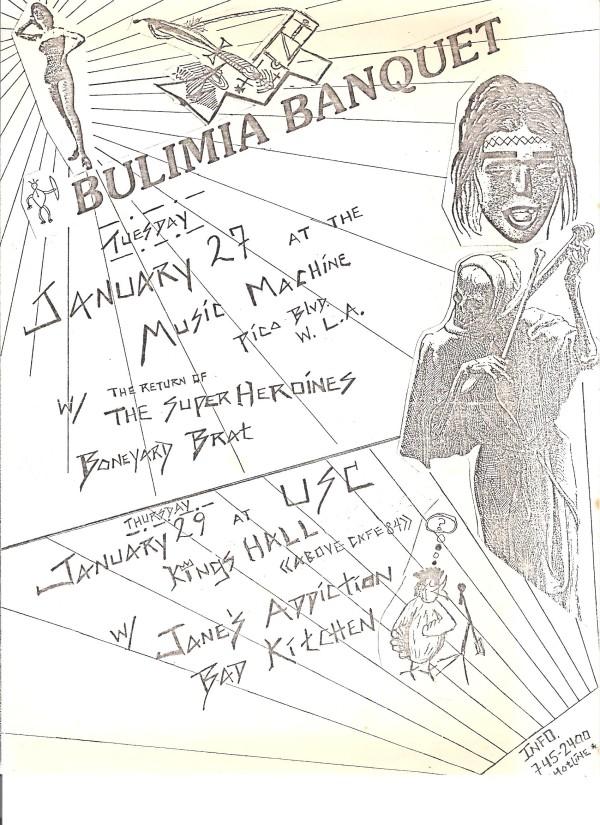 BULIMIA BANQUET
TUESDAY
JANUARY 27 AT THE
MUSIC MACHINE
PICO BLVD.
W. L.A.
W/ THE RETURN OF
THE SUPER HEROINES
BONEYARD BRAT
THURSDAY
JANUARY 29 AT USC
KINGS HALL
((ABOVE CAFE 84))
W/ JANE'S ADDICTION
BAD KITCHEN
?
INFO.
745-2400
HOTLINE*